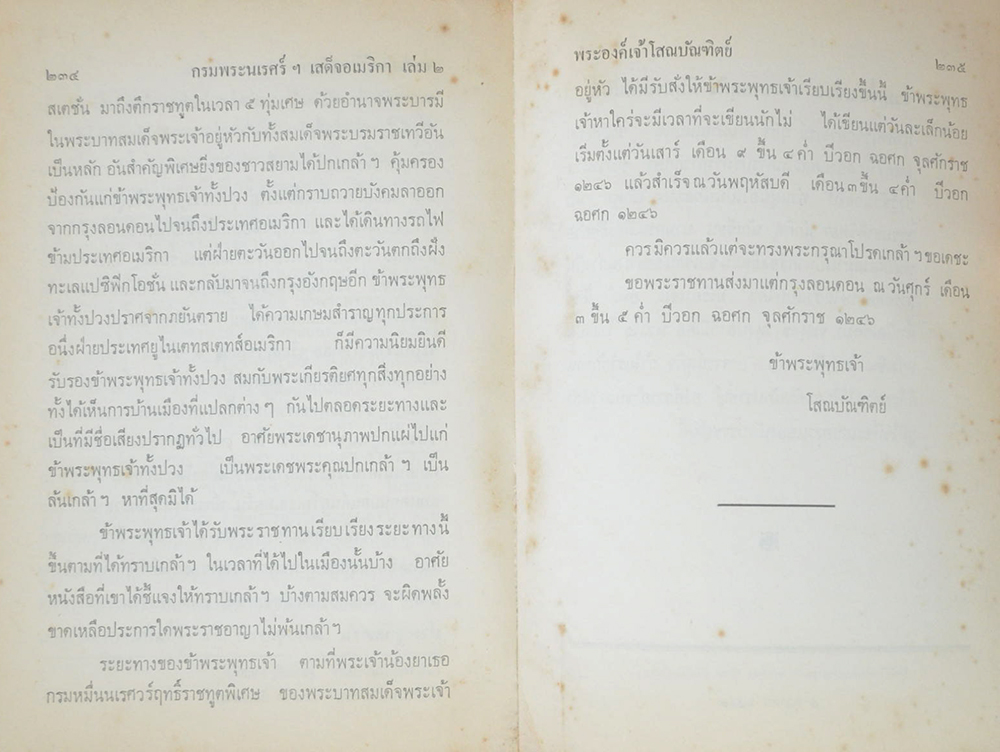 ๒๓๔ กรมพระนเรศร์ ฯ เสด็จอเมริกา เล่ม ๒
สเตชั่น มาถึงตึกราชทูตในเวลา ๕ ทุ่มเศษ ด้วยอำนาจพระบารมี
ในพระบาทสมเด็จพระเจ้าอยู่หัวกับทั้งสมเด็จพระบรมราชเทวีอัน
เป็นหลัก อันสำคัญพิเศษยิ่งของชาวสยามได้ปกเกล้า ฯ คุ้มครอง
ป้องกันแก่ข้าพระพุทธเจ้าทั้งปวง ตั้งแต่กราบถวายบังคมลาออก
จากกรุงลอนดอนไปจนถึงประเทศอเมริกา และได้เดินทางรถไฟ
ข้ามประเทศอเมริกา แต่ฝ่ายตะวันออกไปจนถึงตะวันตกถึงฝั่ง
ทะเลแปซิฟิกโอชั่น และกลับมาจนถึงกรุงอังกฤษอีก ข้าพระพุทธ
เจ้าทั้งปวงปราศจากภยันตราย ได้ความเกษมสำราญทุกประการ
อนึ่งฝ่ายประเทศยูไนเตทสเตทส์อเมริกา ก็มีความนิยมยินดี
รับรองข้าพระพุทธเจ้าทั้งปวง สมกับพระเกียรติยศทุกสิ่งทุกอย่าง
ทั้งได้เห็นการบ้านเมืองที่แปลกต่าง ๆ กันไปตลอดระยะทางและ
เป็นที่มีชื่อเสียงปรากฏทั่วไป อาศัยพระเดชานุภาพปกแผ่ไปแก่
ข้าพระพุทธเจ้าทั้งปวง เป็นพระเดชพระคุณปกเกล้า ฯ เป็น
ล้นเกล้า ฯ หาที่สุดมิได้
ข้าพระพุทธเจ้าได้รับพระราชทานเรียบเรียงระยะทางนี้
ขึ้นตามที่ได้ทราบเกล้าฯ ในเวลาที่ได้ไปในเมืองนั้นบ้าง อาศัย
หนังสือที่เขาได้ชี้แจงให้ทราบเกล้าฯ บ้างตามสมควร จะผิดพลั้ง
ขาดเหลือประการใดพระราชอาญาไม่พ้นเกล้าฯ
ระยะทางของข้าพระพุทธเจ้า ตามที่พระเจ้าน้องยาเธอ
กรมหมื่นนเรศวร์ฤทธิ์ราชทูตพิเศษ ของพระบาทสมเด็จพระเจ้า
พระองค์เจ้าโสณบัณฑิตย์ ๒๓๕
อยู่หัว ได้มีรับสั่งให้ข้าพระพุทธเจ้าเรียบเรียงขึ้นนี้ ข้าพระพุทธ
เจ้าหาใคร่จะมีเวลาที่จะเขียนนักไม่ ได้เขียนแต่วันละเล็กน้อย
เริ่มตั้งแต่วันเสาร์ เดือน ๙ ขึ้น ๔ ค่ำ ปีวอก ฉอศก จุลศักราช
๑๒๔๖ แล้วสำเร็จ ณ วันพฤหัสบดี เดือน ๓ ขึ้น ๔ ค่ำ ปีวอก
ฉอศก ๑๒๔๖
ควรมิควรแล้วแต่จะทรงพระกรุณาโปรดเกล้า ฯ ขอเดชะ
ขอพระราชทานส่งมาแต่กรุงลอนดอน ณ วันศุกร์ เดือน
๓ ขึ้น ๕ ค่ำ ปีวอก ฉอศก จุลศักราช ๑๒๔๖
ข้าพระพุทธเจ้า
โสณบัณฑิตย์